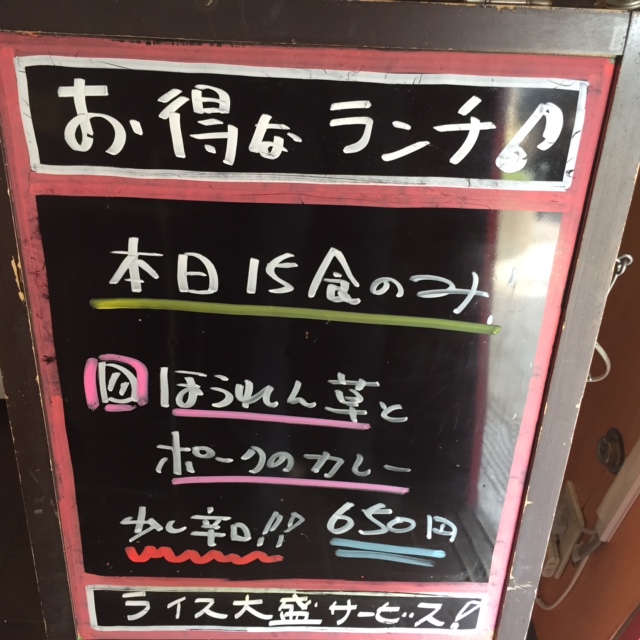 お得なランチ♪
本日15食のみ
ほうれん草と
ポークのカレー
少し辛口!! 650円
ライス大盛サービス!